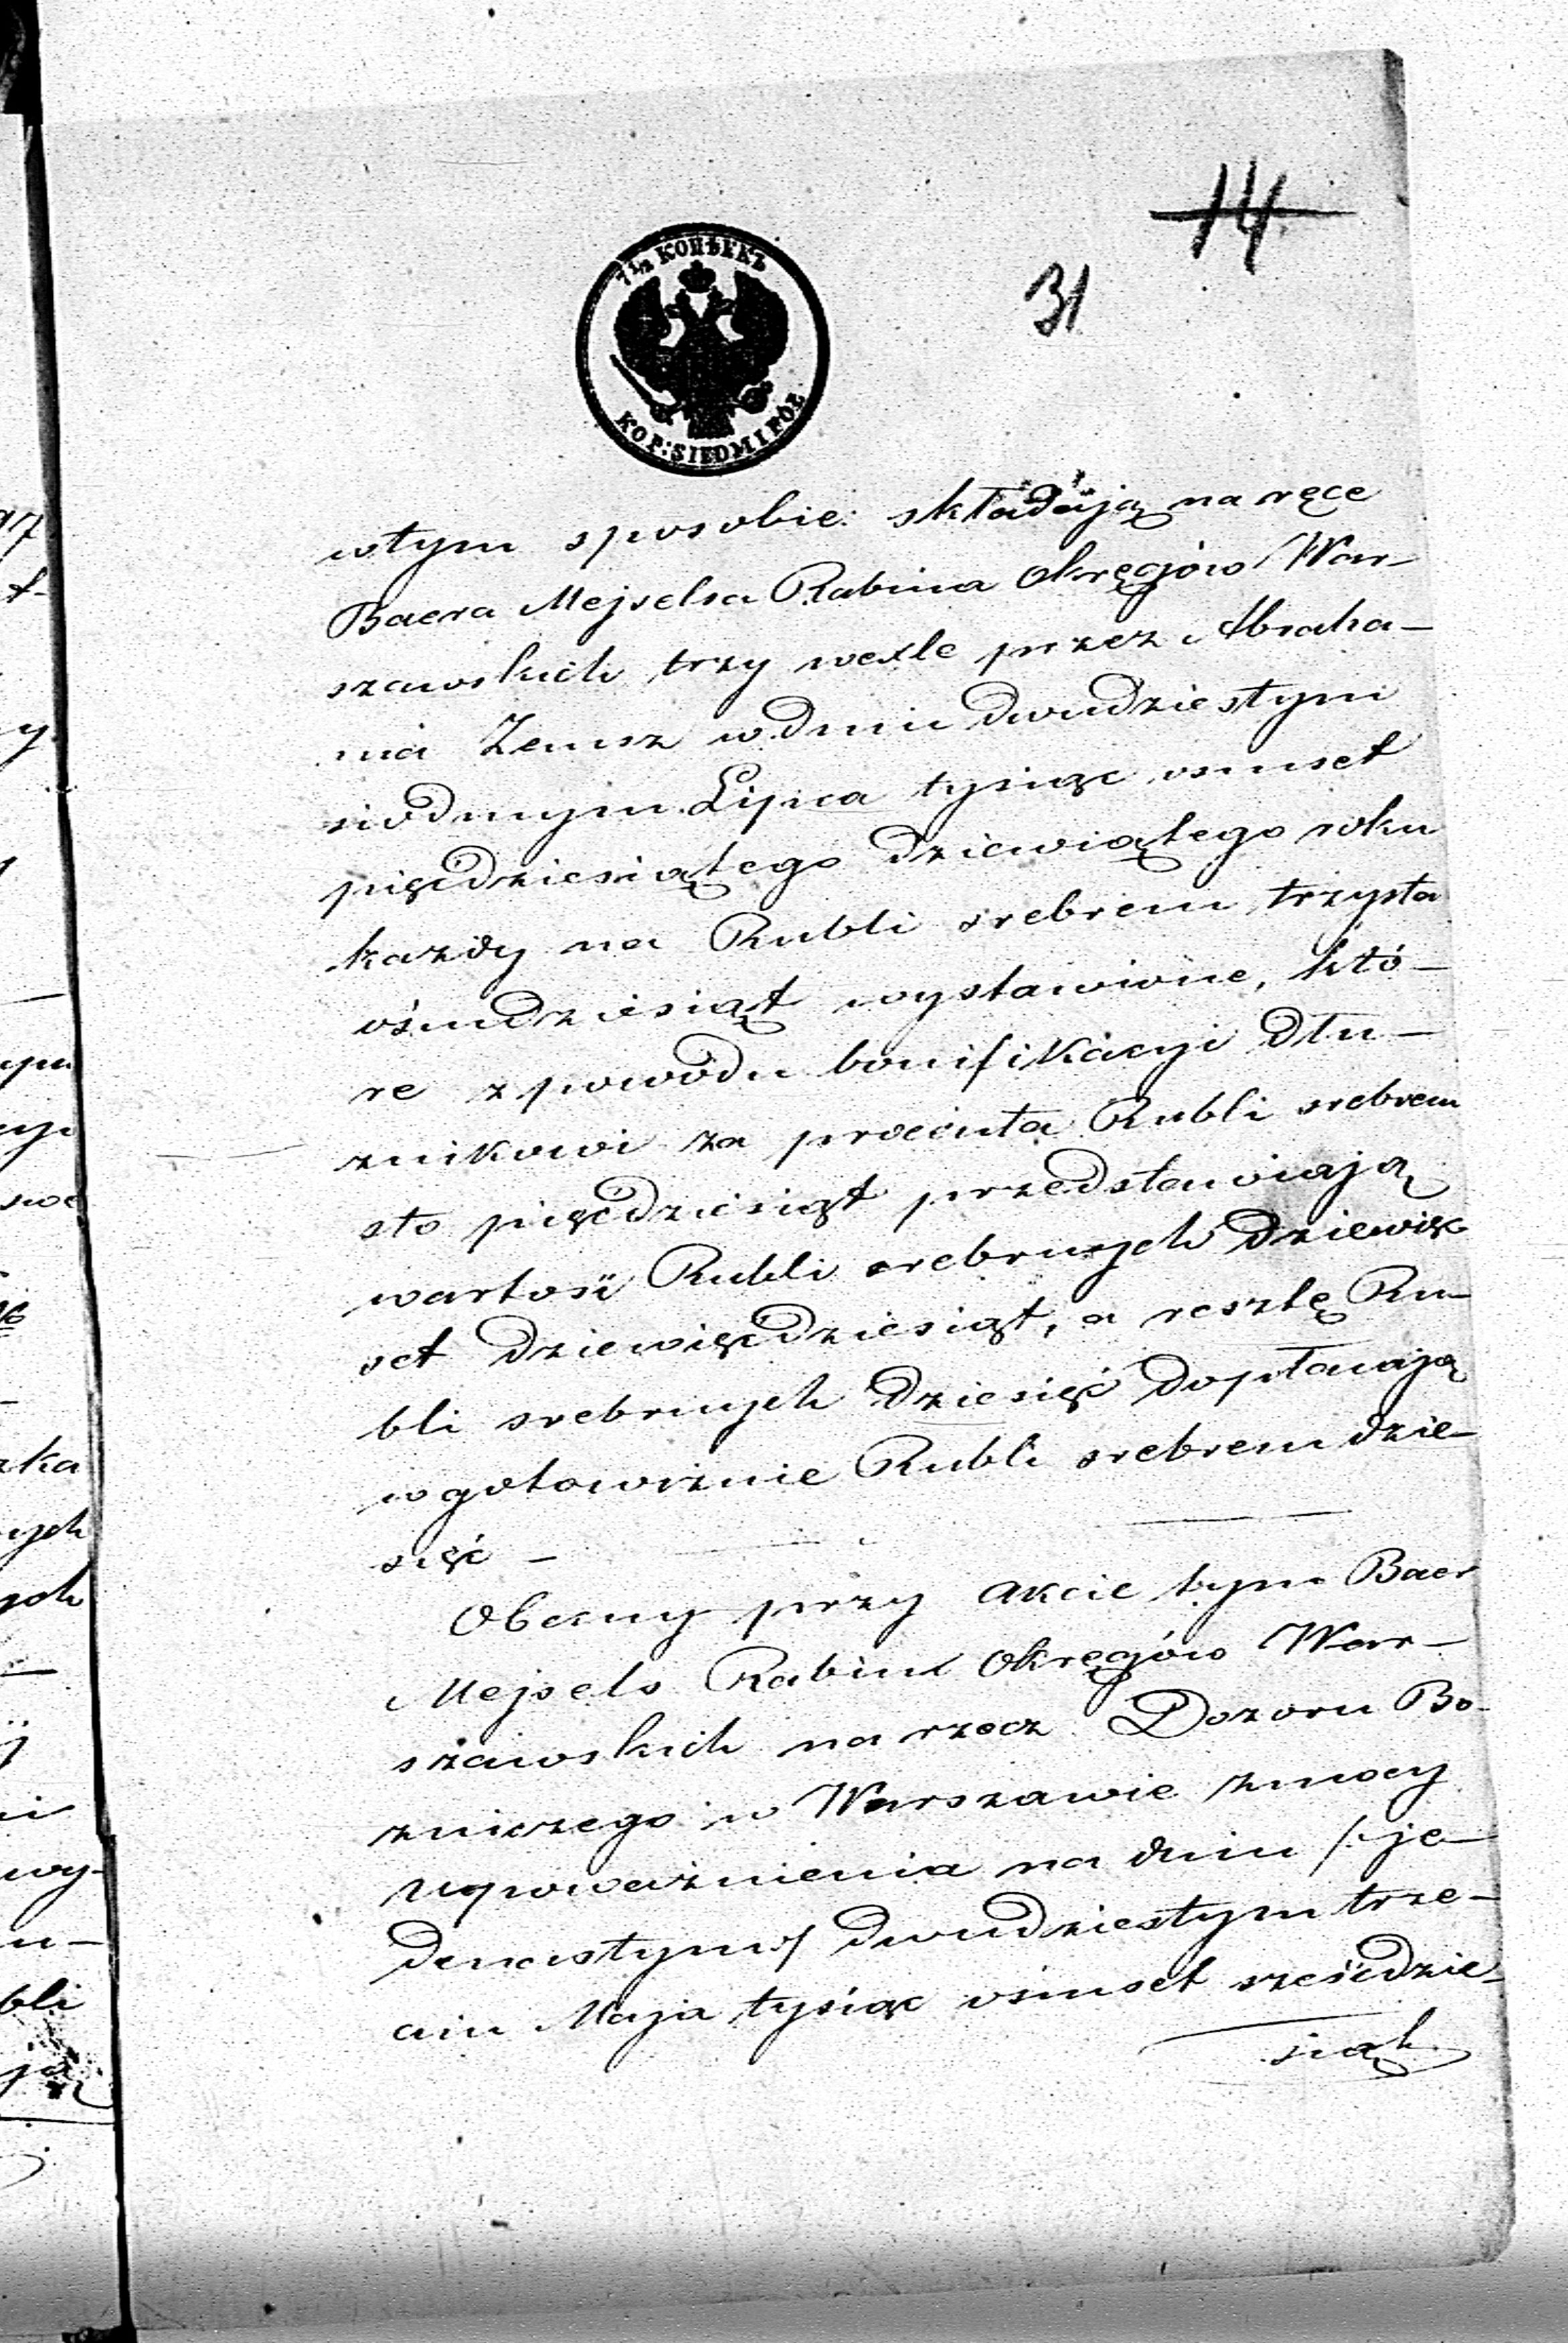 14
31
7½ КОПѢЕКЪ
KOP: SIEDM I PÓŁ
wtym sposobie: składają na ręce
Baera Mejselsa Rabina Okręgów War-
szawskich trzy wexle przez Abraha-
ma Zemsz w dniu dwudziestym
siódmym Lipca tysiąc osmset
pięćdziesiątego dziewiątego roku
każdy na Rubli srebrem trzysta
ośmdziesiąt wystawione, któ-
re z powodu bonifikacyi dłu-
żnikowi za procenta Rubli srebrem
sto pięćdziesiąt przedstawiają
wartość Rubli srebrnych dziewięć
set dziewięćdziesiąt, a resztę Ru-
bli srebrnych dziesięć dopłacają
w gotowiznie Rubli srebrem dzie-
sięć -
Obecny przy akcie tym Baer
Mejsels Rabin Okręgów War-
szawskich na rzecz Dozoru Bo-
zniczego w Warszawie z mocy
upoważnienia na dniu /: je-
denastym / dwudziestym trze-
cim Maja tysiąc ośmset sześćdzie-
siąt